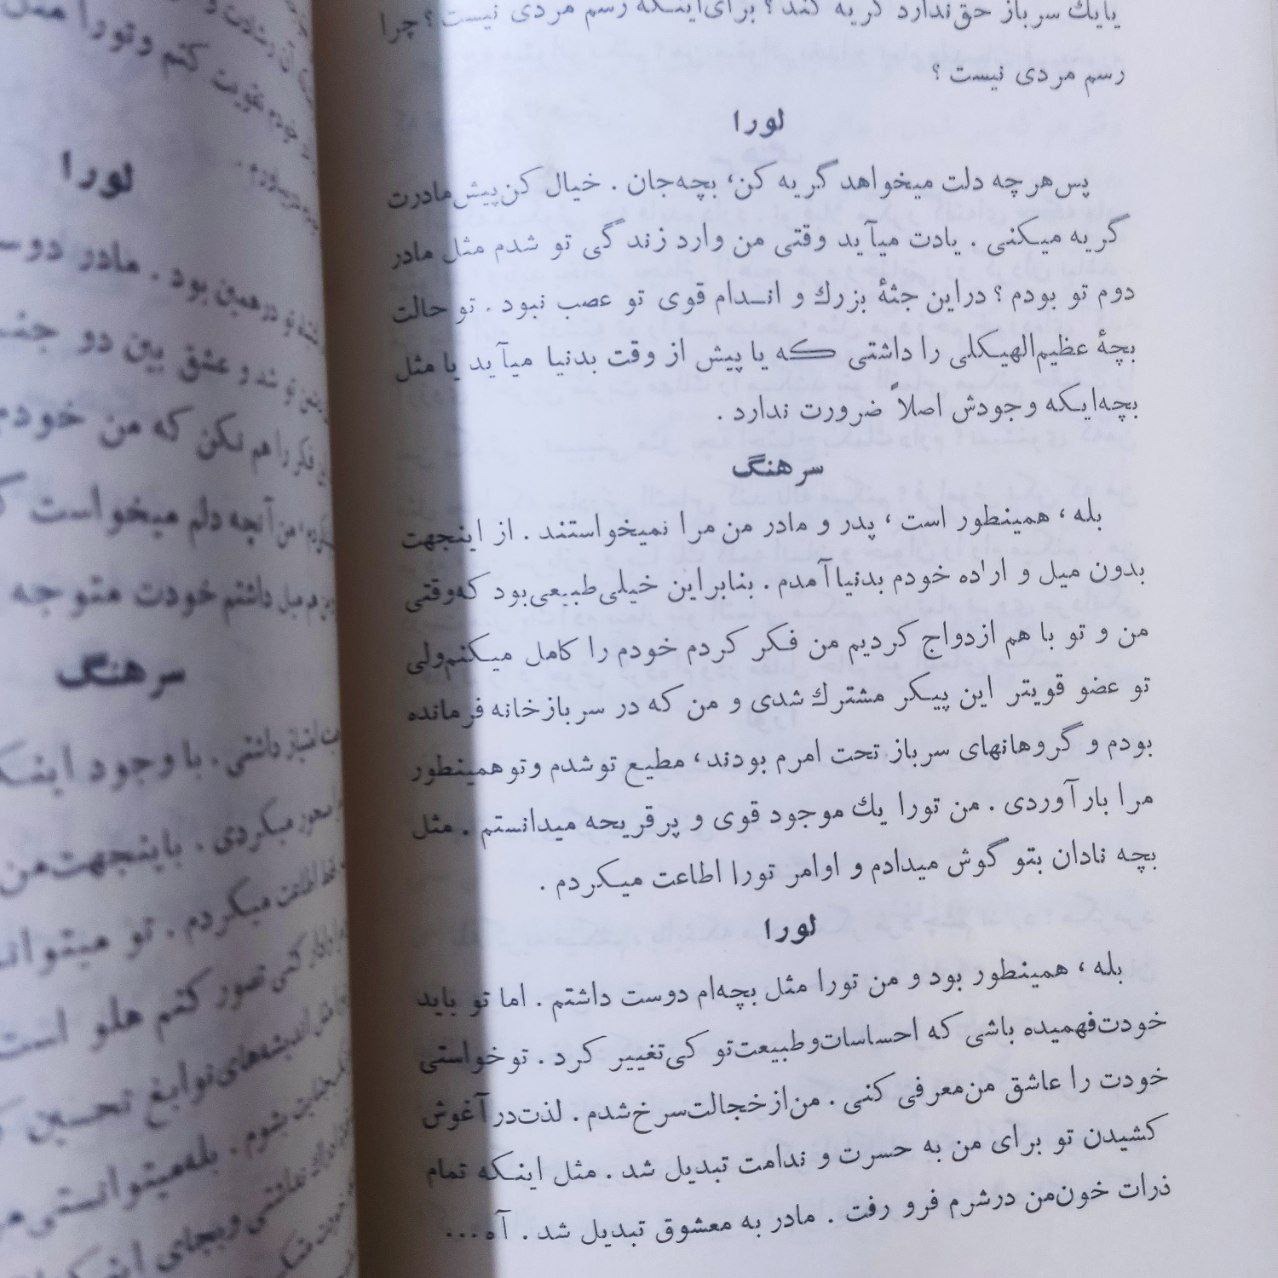 یایك سرباز حق‌ندارد گریه کند؟ برای‌اینکه رسم مردی نیست؟ چرا
رسم مردی نیست؟
لورا
پس‌هرچه دلت میخواهد گریه کن، بچه‌جان. خیال کن‌پیش‌مادرت
گریه میکنی. یادت میآید وقتی من وارد زندگی تو شدم مثل مادر
دوم تو بودم؟ دراین جثهٔ بزرك و اندام قوی تو عصب نبود. تو حالت
بچهٔ عظیم‌الهیکلی را داشتی که یا پیش از وقت بدنیا میآید یا مثل
بچه‌ایکه وجودش اصلاً ضرورت ندارد.
سرهنگ
بله، همینطور است، پدر و مادر من مرا نمیخواستند. از اینجهت
بدون میل و اراده خودم بدنیاآمدم. بنابراین خیلی‌طبیعی‌بود که‌وقتی
من و تو با هم ازدواج کردیم من فکر کردم خودم را کامل میکنم‌ولی
تو عضو قویتر این پیکر مشترك شدی و من که در سربازخانه فرمانده
بودم و گروهانهای سرباز تحت امرم بودند، مطیع توشدم وتوهمینطور
مرا بارآوردی. من تورا یك موجود قوی و پرقریحه میدانستم. مثل
بچه نادان بتو گوش میدادم و اوامر تورا اطاعت میکردم.
لورا
بله، همینطور بود و من تورا مثل بچه‌ام دوست داشتم. اما تو باید
خودت‌فهمیده باشی که احساسات‌وطبیعت‌تو کی‌تغییر کرد. توخواستی
خودت را عاشق من‌معرفی کنی. من‌ازخجالت‌سرخ‌شدم. لذت‌درآغوش
کشیدن تو برای من به حسرت و ندامت تبدیل شد. مثل اینکه تمام
ذرات خون‌من درشرم فرو رفت. مادر به معشوق تبدیل شد. آه...
تقویت کنم و تورا مثل
لورا
تو درهمین بود. مادر
تو شد و عشق بین دو
فکر را هم نکن که من خودم
من آنچه دلم میخواست
میل داشتم خودت متوجه
سرهنگ
امتیاز داشتی. با وجود
میکردی. باینجهت‌من
اطاعت میکردم. تو
کنی تصور کنم هلو است
اندیشه‌های نوابغ تحسین
بشوم. بله‌میتوانستی
وبجای